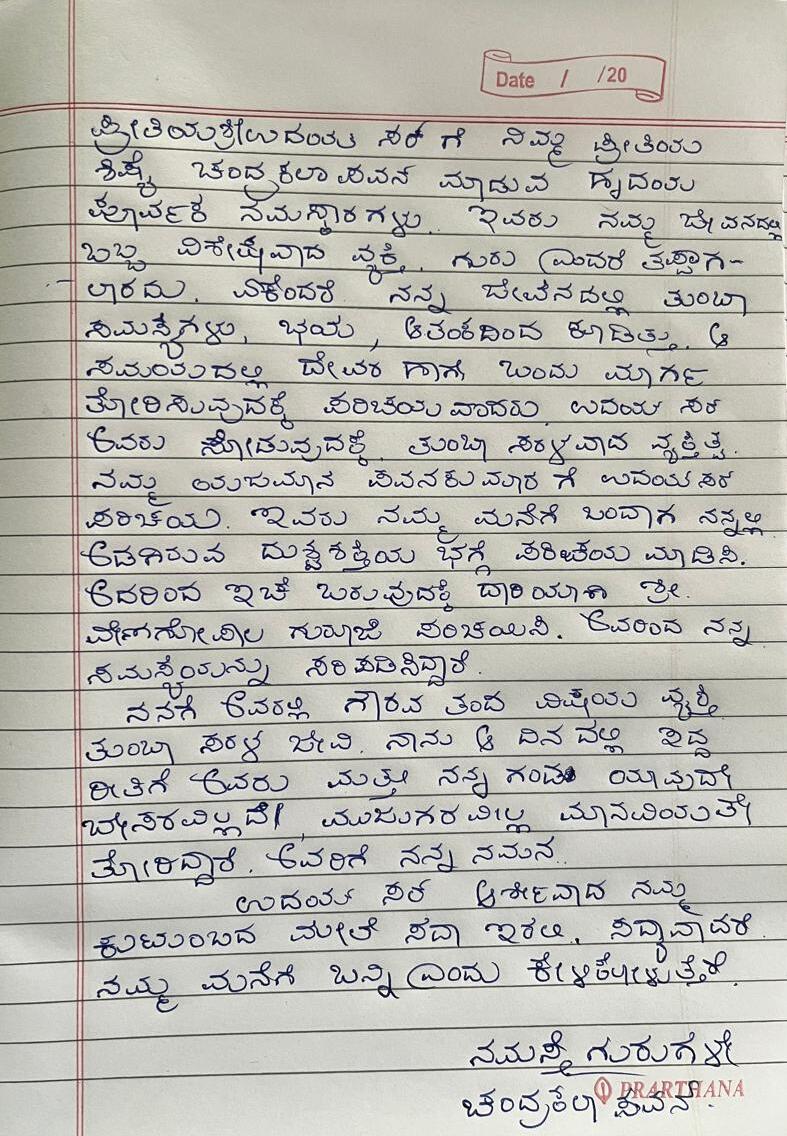 Date / /20
ಪ್ರೀತಿಯ ಶ್ರೀ ಉದಯ ಸರ್ ಗೆ ನಿಮ್ಮ ಪ್ರೀತಿಯ
ಶಿಷ್ಯೆ ಚಂದ್ರಕಲಾ ಪವನ ಮಾಡುವ ಹೃದಯ
ಪೂರ್ವಕ ನಮಸ್ಕಾರಗಳು. ಇವರು ನಮ್ಮ ಜೀವನದಲ್ಲಿ
ಒಬ್ಬ ವಿಶೇಷವಾದ ವ್ಯಕ್ತಿ. ಗುರು ಎಂದರೆ ತಪ್ಪಾಗ-
ಲಾರದು. ಏಕೆಂದರೆ ನನ್ನ ಜೀವನದಲ್ಲಿ ತುಂಬಾ
ಸಮಸ್ಯೆಗಳು, ಭಯ, ಆತಂಕದಿಂದ ಕೂಡಿತ್ತು. ಆ
ಸಮಯದಲ್ಲಿ ದೇವರ ಹಾಗೆ ಒಂದು ಮಾರ್ಗ
ತೋರಿಸುವುದಕ್ಕೆ ಪರಿಚಯವಾದರು. ಉದಯ ಸರ
ಅವರು ನೋಡುವುದಕ್ಕೆ ತುಂಬಾ ಸರಳವಾದ ವ್ಯಕ್ತಿತ್ವ.
ನಮ್ಮ ಯಜಮಾನ ಪವನಕುಮಾರ ಗೆ ಉದಯ ಸರ
ಪರಿಚಯ. ಇವರು ನಮ್ಮ ಮನೆಗೆ ಬಂದಾಗ ನನ್ನಲ್ಲಿ
ಅಡಗಿರುವ ದುಶ್ಟಶಕ್ತಿಯ ಭಗ್ಗೆ ಪರಿಚಯ ಮಾಡಿಸಿ.
ಅದರಿಂದ ಇಚೆ ಬರುವುದಕ್ಕೆ ದಾರಿಯಾಗಿ ಶ್ರೀ.
ವೇಣುಗೋಪಾಲ ಗುರೂಜಿ ಪರಿಚಯಿಸಿ. ಅವರಿಂದ ನನ್ನ
ಸಮಸ್ಯೆಯನ್ನು ಸರಿಪಡಿಸಿದ್ದಾರೆ.
ನನಗೆ ಅವರಲ್ಲಿ ಗೌರವ ತಂದ ವಿಷಯ ವ್ಯಕ್ತಿ
ತುಂಬಾ ಸರಳ ಜೀವಿ. ನಾನು ಆ ದಿನದಲ್ಲಿ ಇದ್ದ
ರೀತಿಗೆ ಅವರು ಮತ್ತು ನನ್ನ ಗಂಡ ಯಾವುದೇ
ಬೇಸರವಿಲ್ಲದೆ, ಮುಜುಗರವಿಲ್ಲ ಮಾನವಿಯತೇ
ತೋರಿದ್ದಾರೆ. ಅವರಿಗೆ ನನ್ನ ನಮನ..
ಉದಯ ಸರ ಆರ್ಶೀವಾದ ನಮ್ಮ
ಕುಟುಂಬದ ಮೇಲೆ ಸದಾ ಇರಲಿ.
ನಮ್ಮ ಮನೆಗೆ ಬನ್ನಿ ಎಂದು ಕೇಳಿಕೋಳ್ಳುತ್ತೆನೆ.
ನಮಸ್ತೆ ಗುರುಗಳೇ
PRARTHANA
ಚಂದ್ರಕಲಾ ಪವನ.